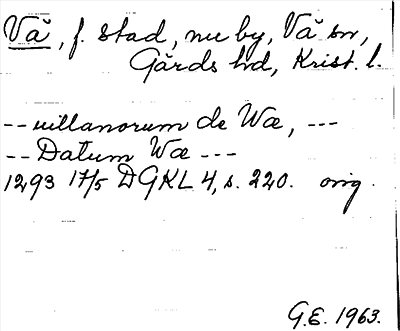 Vä, f. stad, nu by, Vä sn,
Gärds hd, Krist. l.
-- villanorum de Wæ, ---
-- Datum Wæ ---
1293 17/5 DGKL 4, s. 220. orig.
G.E. 1963.